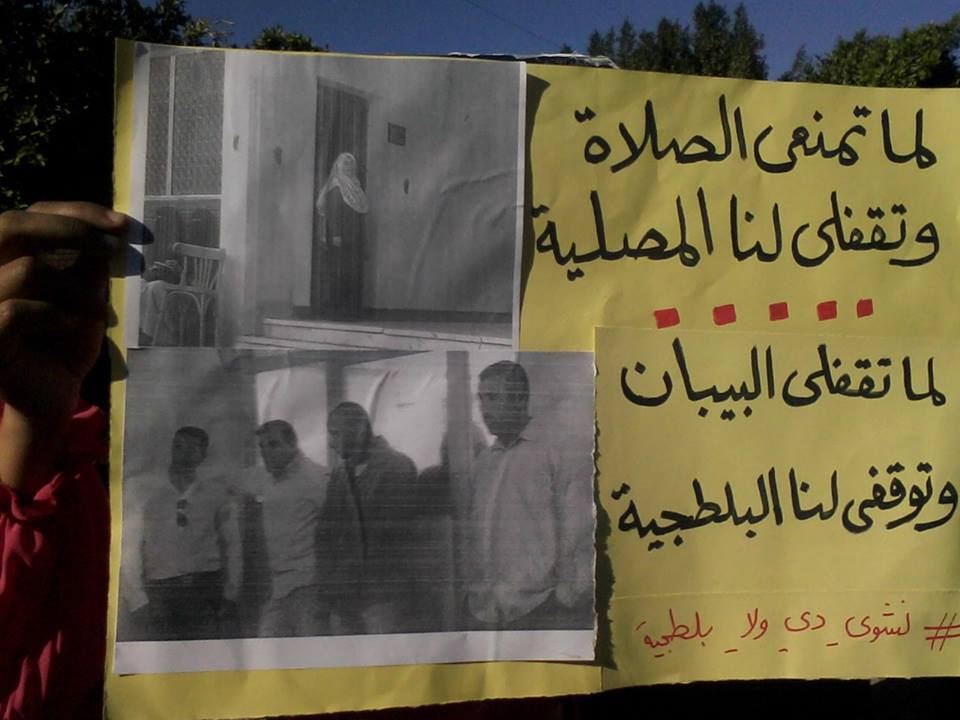 لما تمنعى الصلاة
وتقفلى لنا المصلية
لما تقفلى البيبان
وتوقفى لنا البلطجية
# نشوى دي ولا بلطجية